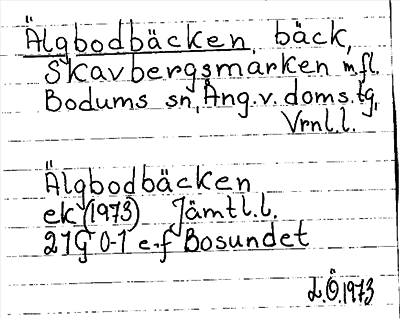 Älgbodbäcken, bäck,
Skavbergsmarken m.fl.
Bodums sn, Ång. v. doms.tg,
Vrnl.l.
Älgbodbäcken
ek (1973) Jämtl.l.
21G 0-1 e-f Bosundet
L.Ö. 1973